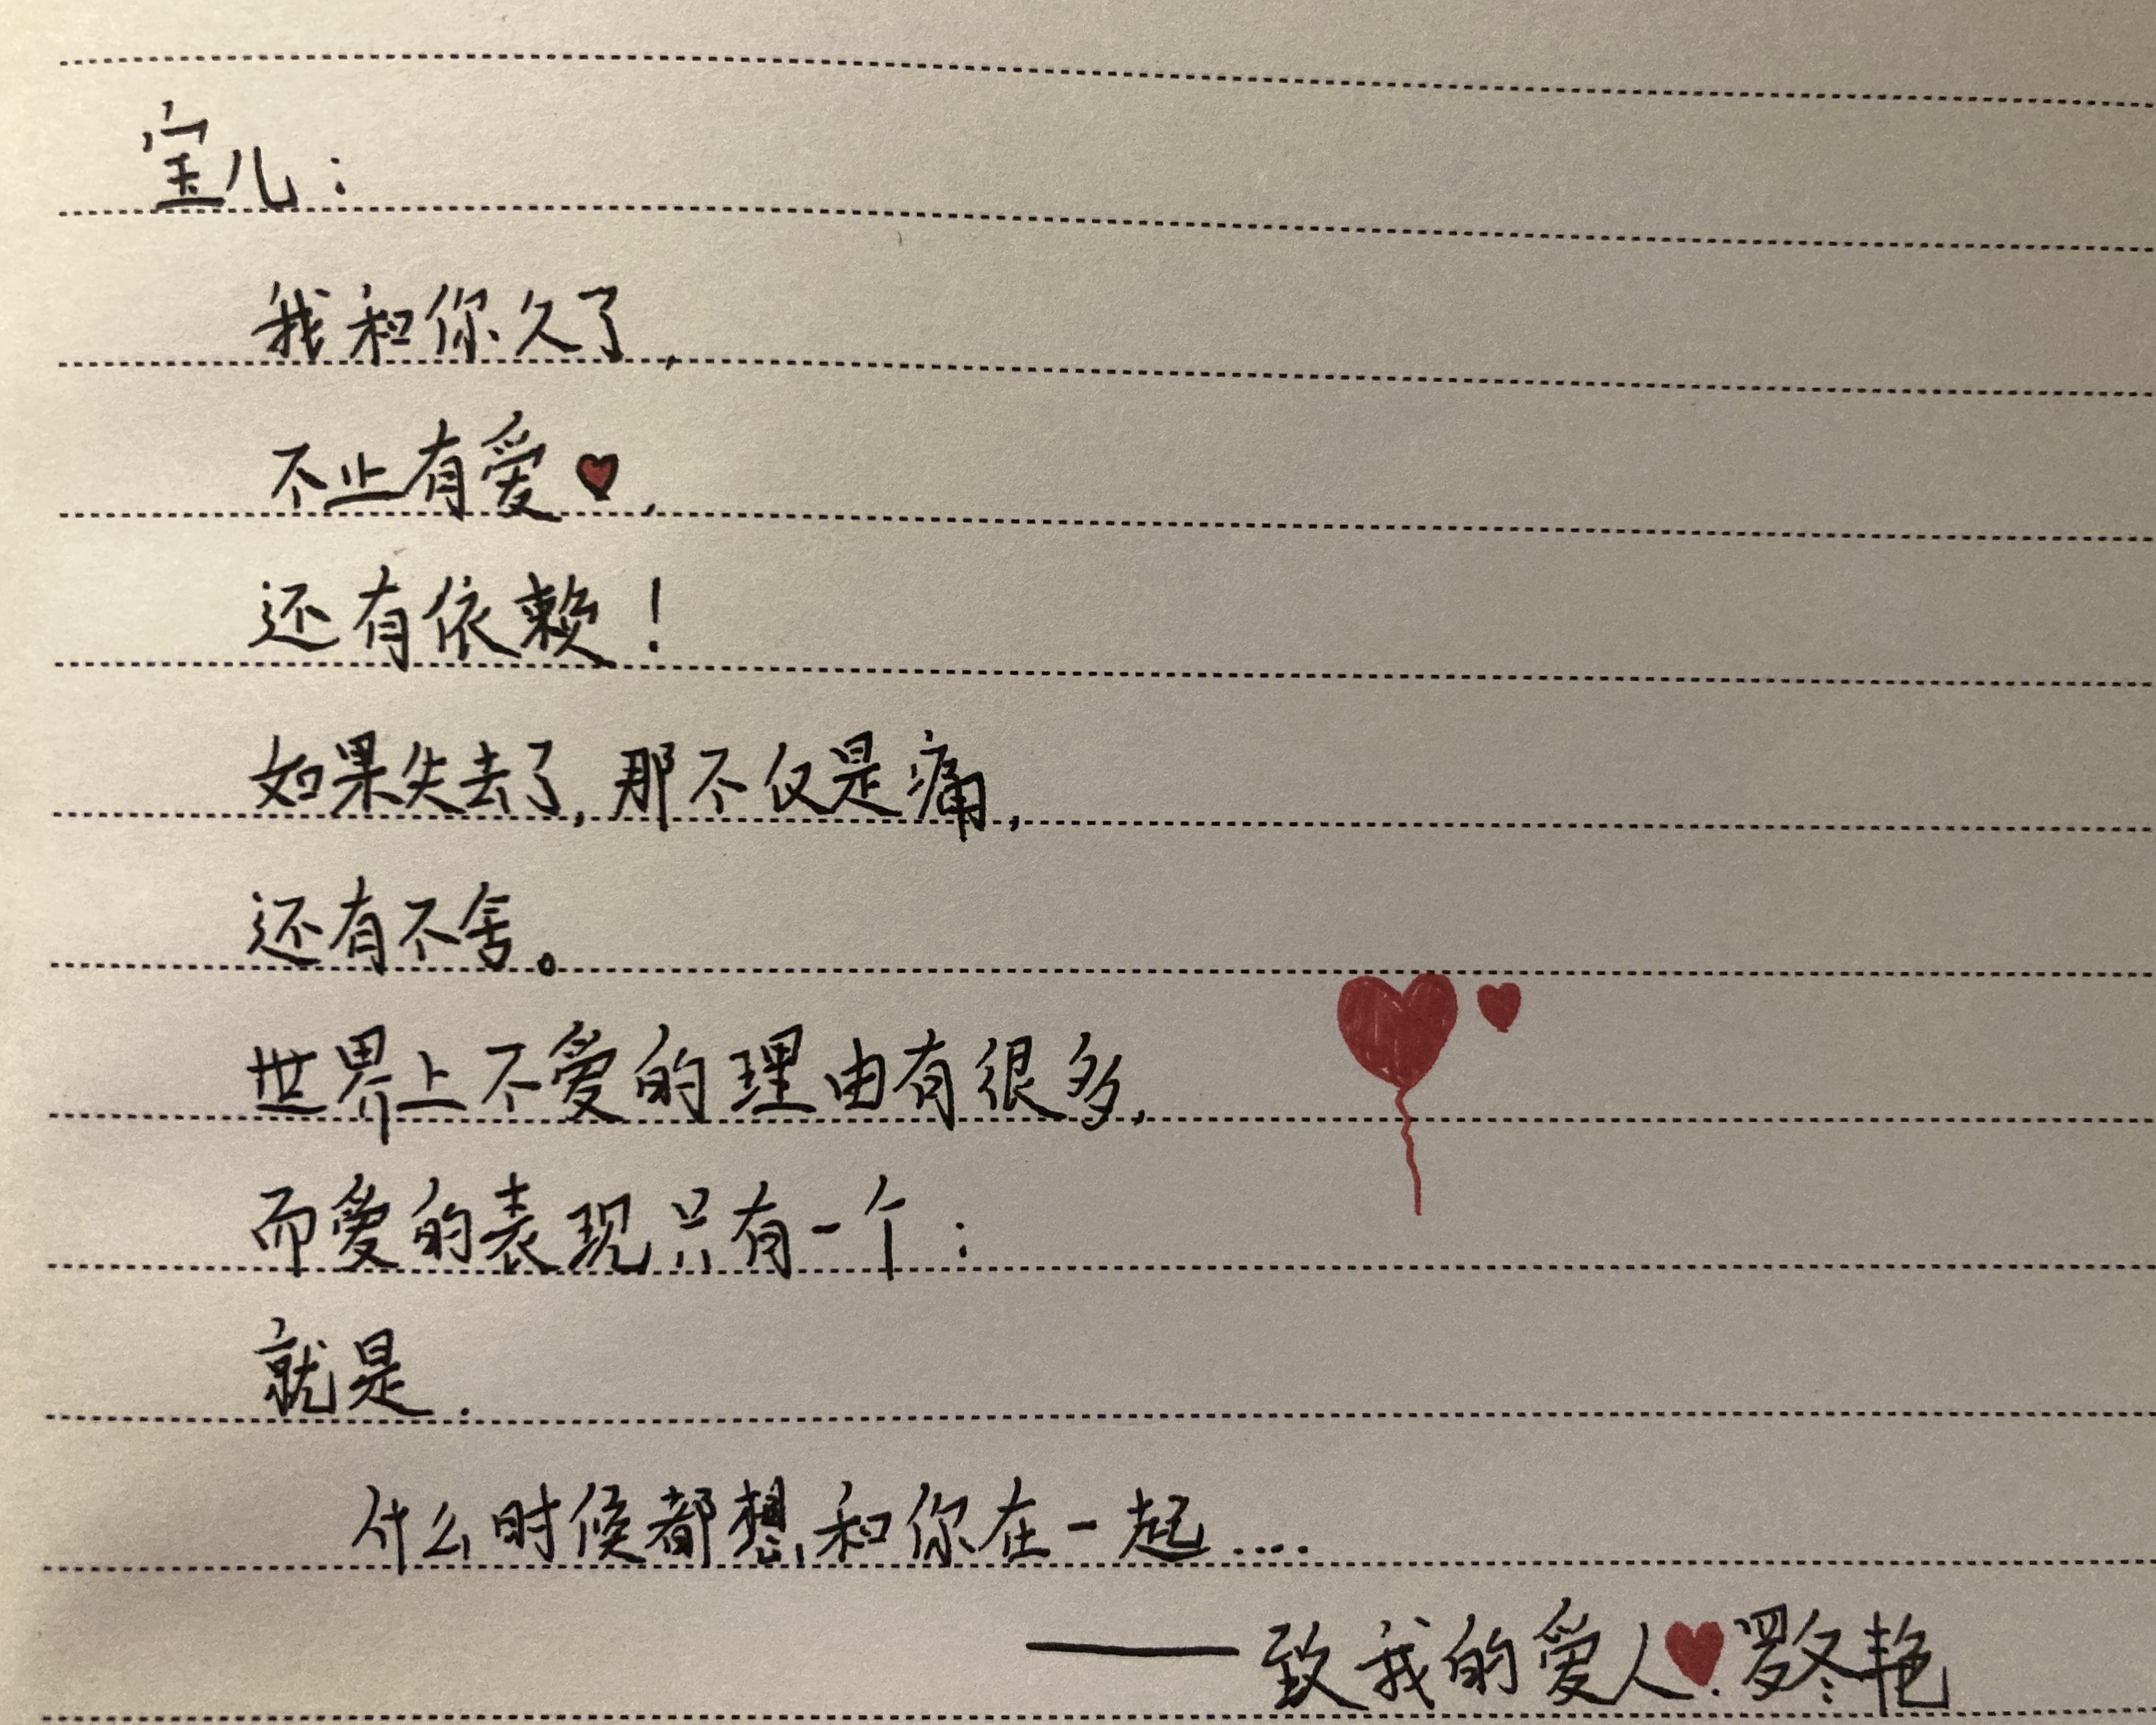 宝儿：
我和你久了，
不止有爱❤，
还有依赖！
如果失去了，那不仅是痛，
还有不舍。
世界上不爱的理由有很多，
而爱的表现只有一个：
就是．
什么时候都想和你在一起....
——致我的爱人❤．罗冬艳